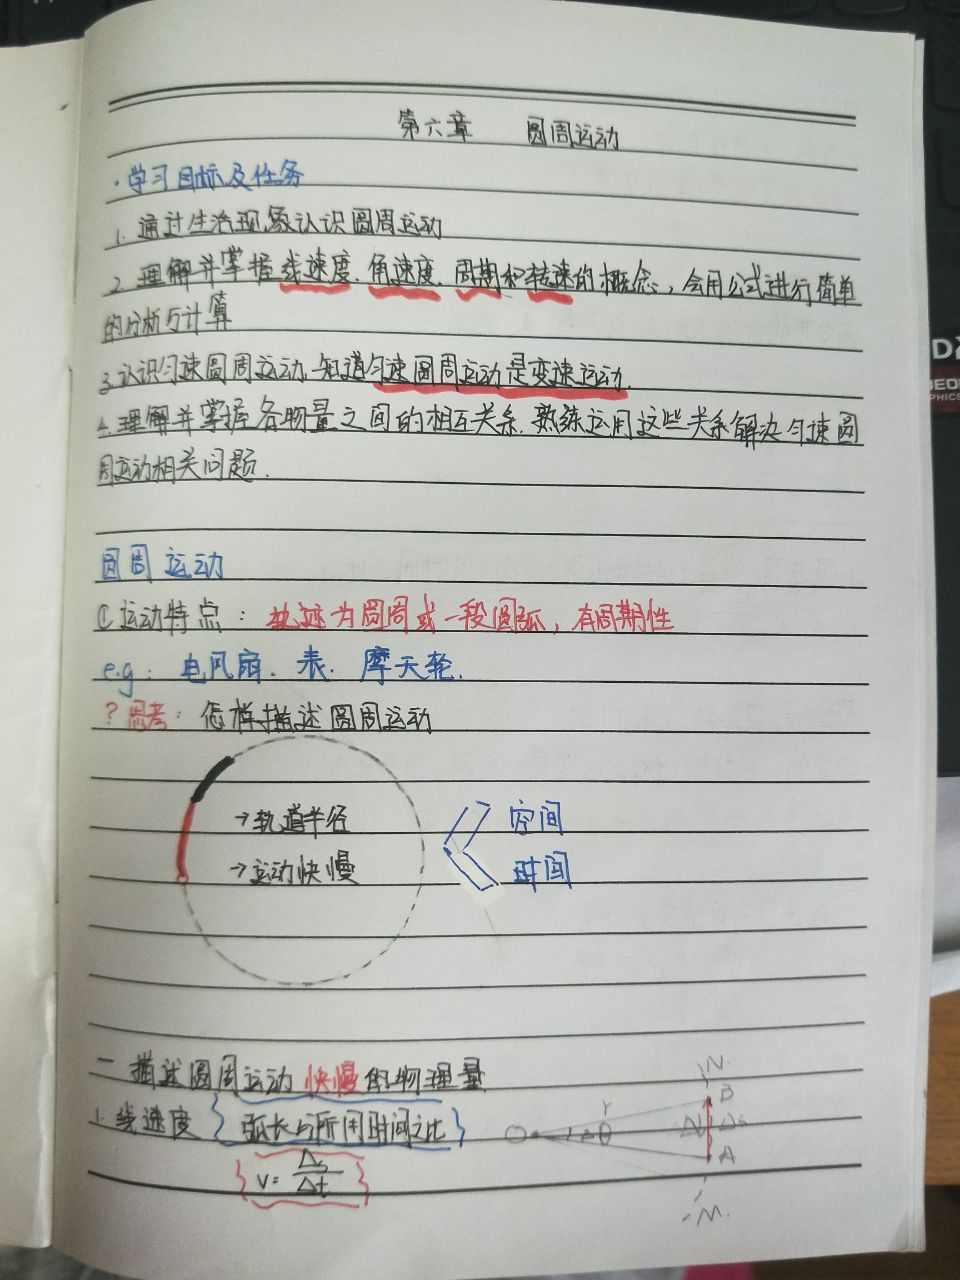 第六章 圆周运动
·学习目标及任务
1.通过生活现象认识圆周运动
2.理解并掌握线速度.角速度.周期和转速的概念,会用公式进行简单
的分析与计算
3.认识匀速圆周运动.知道匀速圆周运动是变速运动.
4.理解并掌握各物量之间的相互关系.熟练运用这些关系解决匀速圆
周运动相关问题.
圆周运动
运动特点:轨迹为圆周或一段圆弧,有周期性
e.g:电风扇.表.摩天轮.
?思考:怎样描述圆周运动
→轨道半径
→运动快慢
空间
时间
一 描述圆周运动快慢的物理量
1.线速度 {弧长与所用时间之比}
{v=Δs/Δt}
N.
B
r
O
θ
Δl
Δs
A
M.